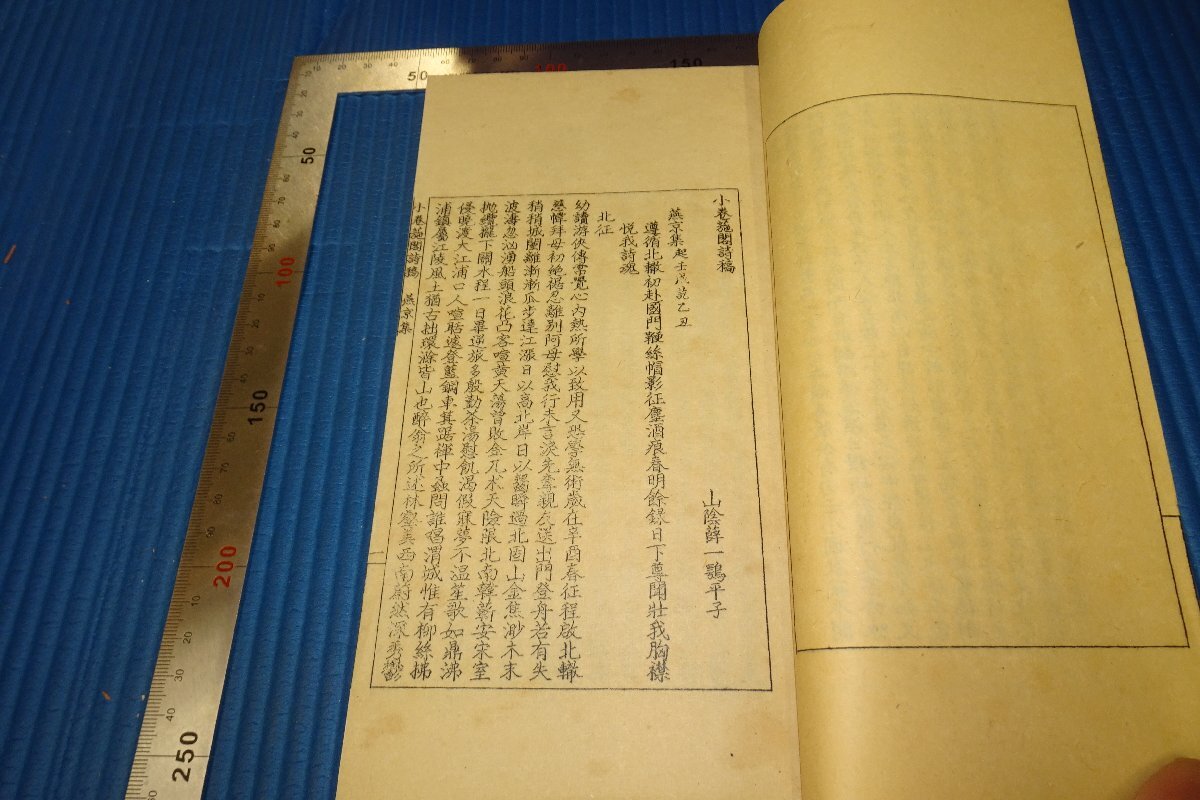 小卷葹閣詩稿
山陰薛一鶚平子
燕京集起壬戌訖乙丑
遵循北轍初赴國門鞭絲帽影征塵酒痕春明餘錄日下尊聞壯我胸襟
悅我詩魂
北征
幼讀游俠傳常覺心內熱所學以致用又恐譽無術歲在辛酉春征程啟北轍
慈幃拜母初絕裾忍離别阿母慰我行未言淚先垂親友送出門登舟若有失
稍稍城闉離漸漸瓜步達江漲日以高北岸日以闊瞬過北固山金焦渺木末
波濤忽洶湧船頭浪花凸客喧黄天蕩曾敗金兀朮天險限北南韓蘄安宋室
拋纜擺下關水程一日畢逆旅多殷勤茶湯慰飢渴假寐夢不溫笙歌如鼎沸
侵曉渡大江浦口人喧聒遂登藍鋼車箕踞褌中蝨問誰唱渭城惟有柳絲拂
浦鎮屬江陵風土猶古拙環滁皆山也醉翁之所述林壑美西南蔚然深秀
小卷葹閣詩稿 燕京集
50 100 150
50
100
150
200
250